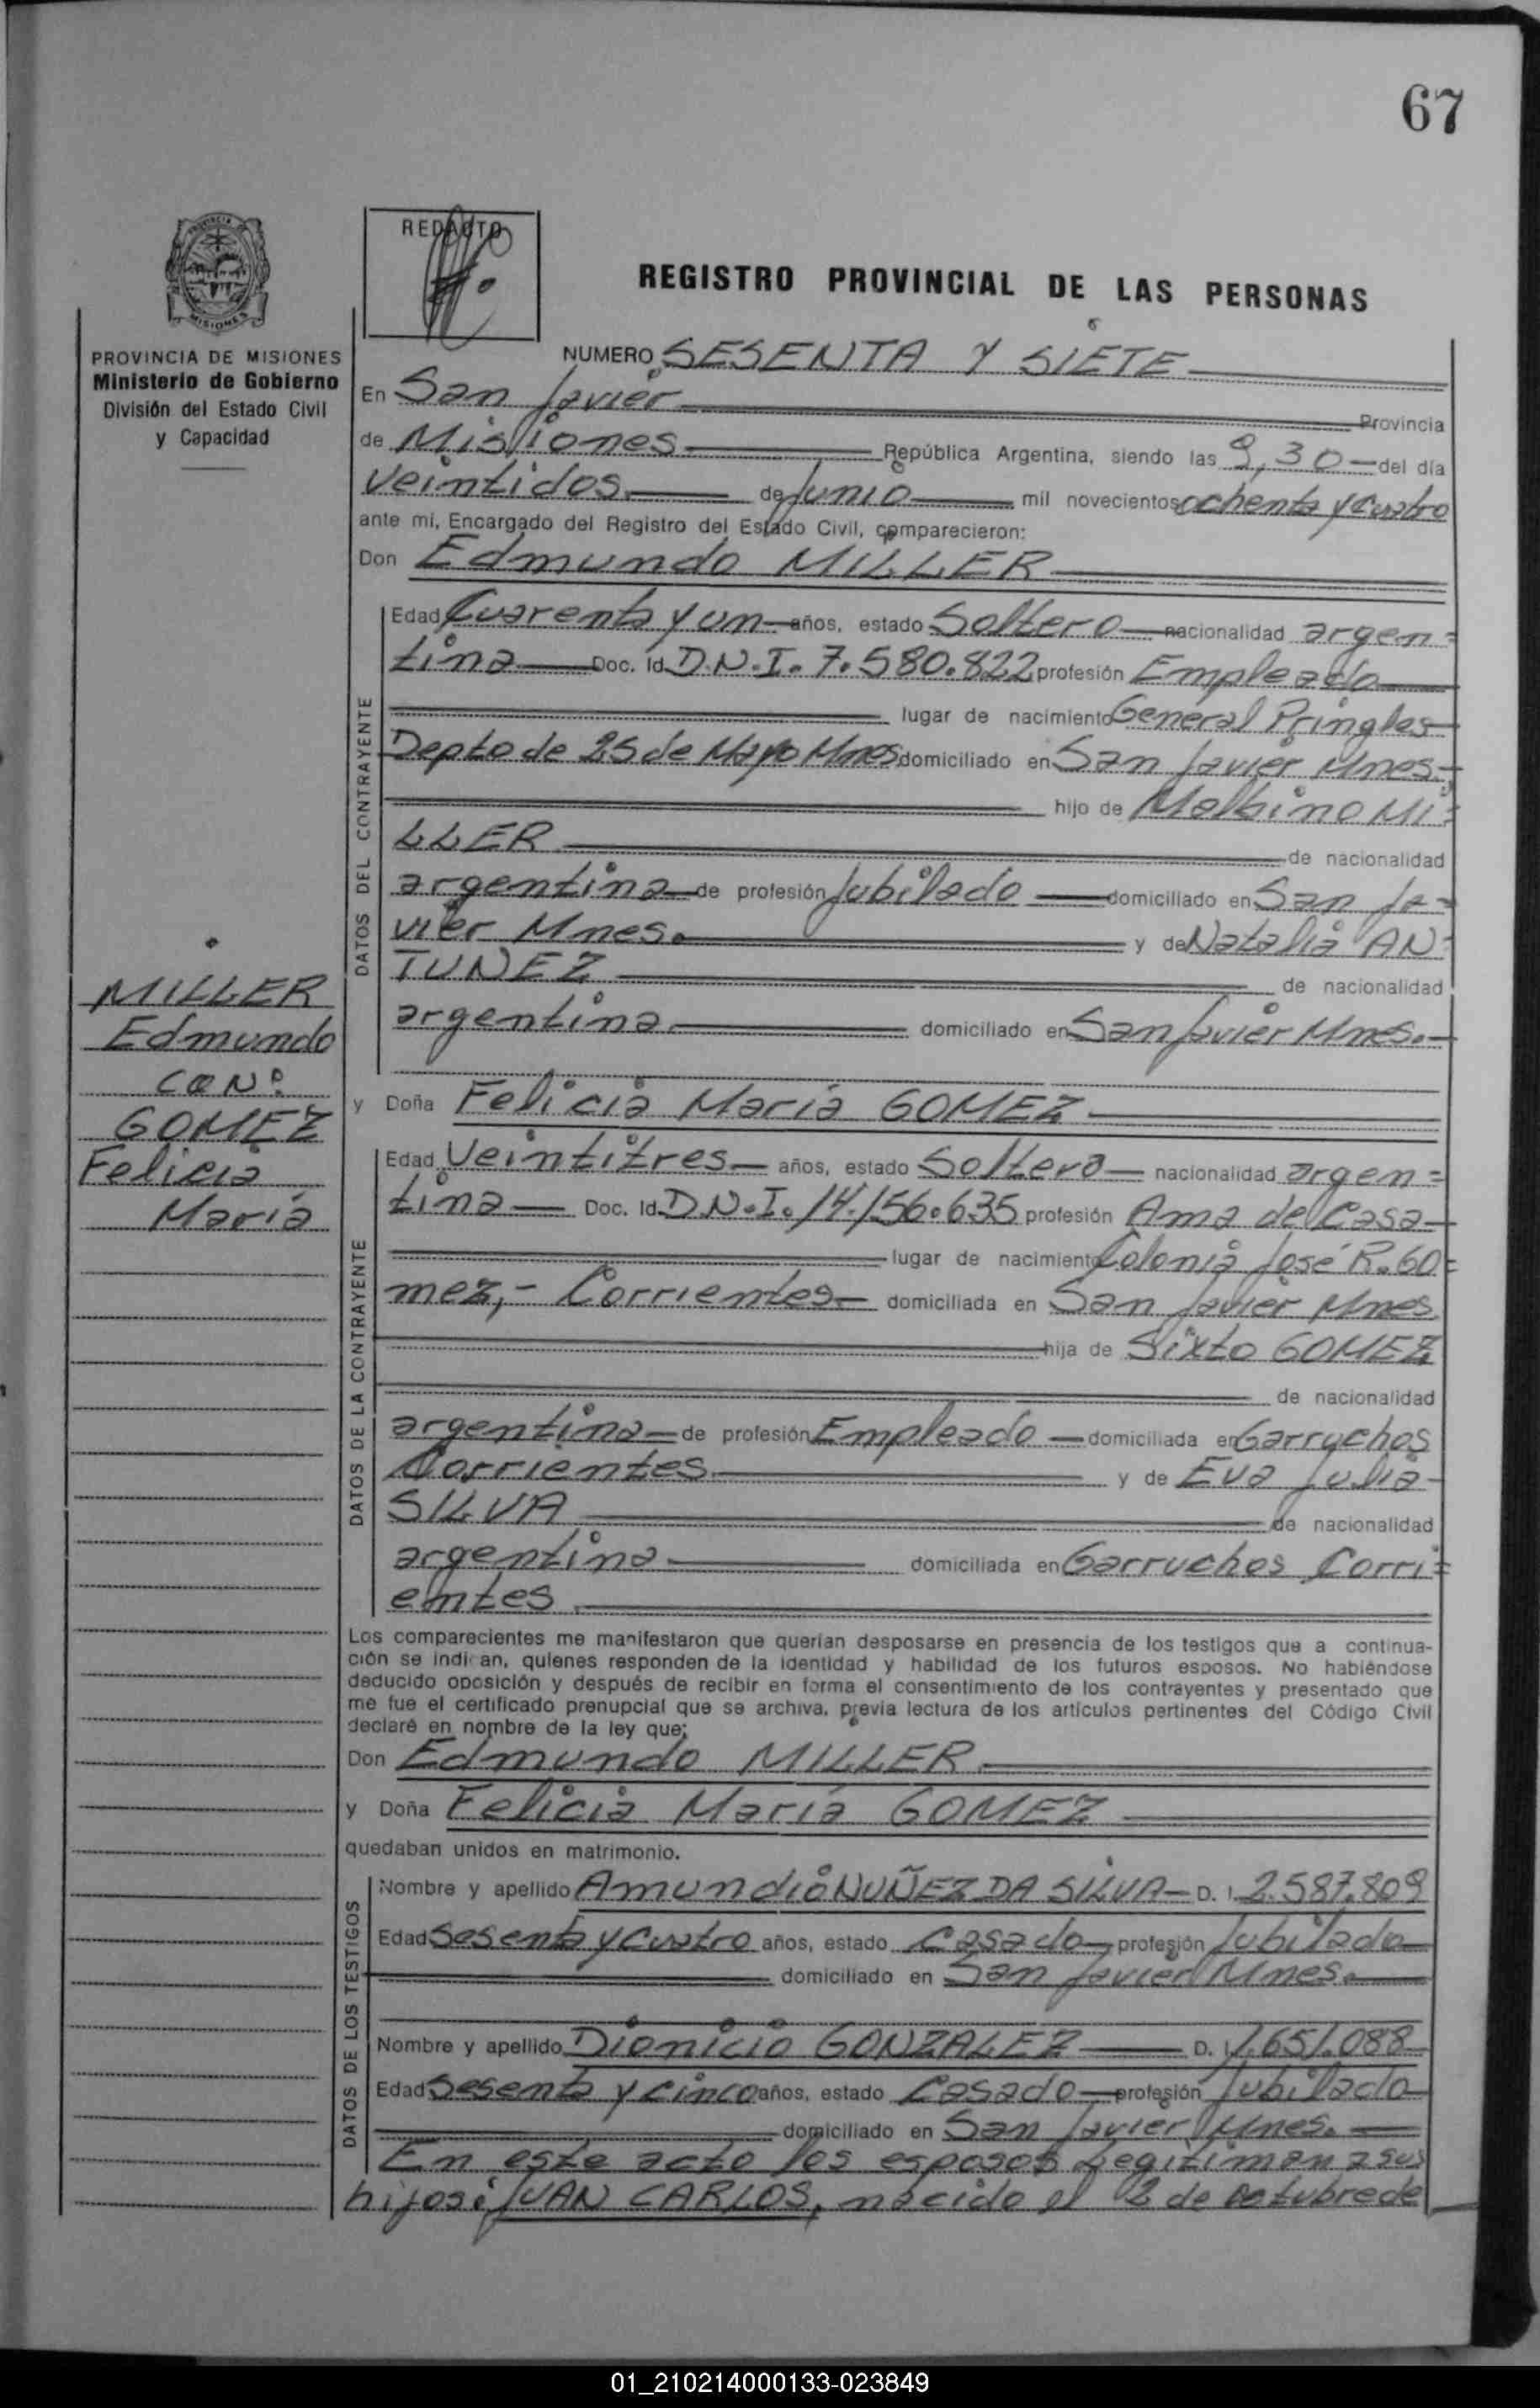 67
PROVINCIA
MISIONES
REDACTO
REGISTRO PROVINCIAL DE LAS PERSONAS
PROVINCIA DE MISIONES
Ministerio de Gobierno
División del Estado Civil
y Capacidad
NUMERO SESENTA Y SIETE
En San Javier Provincia
de Misiones República Argentina, siendo las 9,30 del día
veintidos de Junio mil novecientos ochenta y cuatro
ante mí, Encargado del Registro del Estado Civil, comparecieron:
Don Edmundo MILLER
DATOS DEL CONTRAYENTE
Edad Cuarenta y un años, estado Soltero nacionalidad argen=
tina Doc. Id. D.N.I. 7.580.822 profesión Empleado
lugar de nacimiento General Pringles
Depto de 25 de Mayo Mnes domiciliado en San Javier Mnes.
hijo de Malbino MI=
LLER de nacionalidad
argentina de profesión Jubilado domiciliado en San Ja=
vier Mnes. y de Natalia AN=
TUNEZ de nacionalidad
argentina domiciliado en San Javier Mnes.
MILLER
Edmundo
CON:
GOMEZ
Felicia
María
y Doña Felicia María GOMEZ
DATOS DE LA CONTRAYENTE
Edad Veintitres años, estado Soltera nacionalidad argen=
tina Doc. Id. D.N.I. 14.156.635 profesión Ama de Casa
lugar de nacimiento Colonia José R. GO=
mez,- Corrientes domiciliada en San Javier Mnes
hija de Sixto GOMEZ
de nacionalidad
argentina de profesión Empleado domiciliada en Garruchos
Corrientes y de Eva Julia
SILVA de nacionalidad
argentina domiciliada en Garruchos Corri=
emtes
Los comparecientes me manifestaron que querían desposarse en presencia de los testigos que a continua-
ción se indican, quienes responden de la identidad y habilidad de los futuros esposos. No habiéndose
deducido oposición y después de recibir en forma el consentimiento de los contrayentes y presentado que
me fue el certificado prenupcial que se archiva, previa lectura de los artículos pertinentes del Código Civil
declaré en nombre de la ley que:
Don Edmundo MILLER
y Doña Felicia María GOMEZ
quedaban unidos en matrimonio.
DATOS DE LOS TESTIGOS
Nombre y apellido Amundio NUÑEZ DA SILVA D. I. 2.587.809
Edad Sesenta y Cuatro años, estado Casado profesión Jubilado
domiciliado en San Javier Mnes.
Nombre y apellido Dionicio GONZALEZ D. I. 1.651.088
Edad Sesenta y cinco años, estado Casado profesión Jubilado
domiciliado en San Javier Mnes.
En este acto los esposos legitiman a sus
hijos: JUAN CARLOS, nacido el 2 de octubre de
01_210214000133-023849